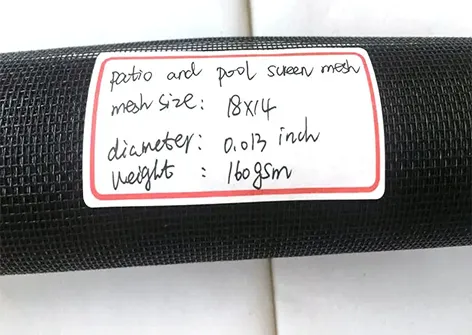 patio and pool screen mesh
mesh size: 18x14
diameter: 0.013 inch
weight : 160gsm